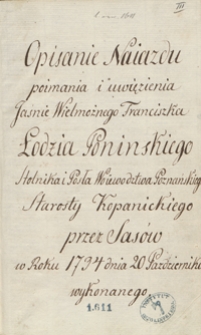 III
Opisanie Naiazdu
poimania i uwięzienia
Jaśnie Wielmożnego Franciszka
Łodzia Poninskiego
Stolnika i Posła Woiewodztwa Poznańskieg
Starosty Kopanickiego
przez Sasów
w Roku 1794 dnia 20 Październik
wykonanego
1.811